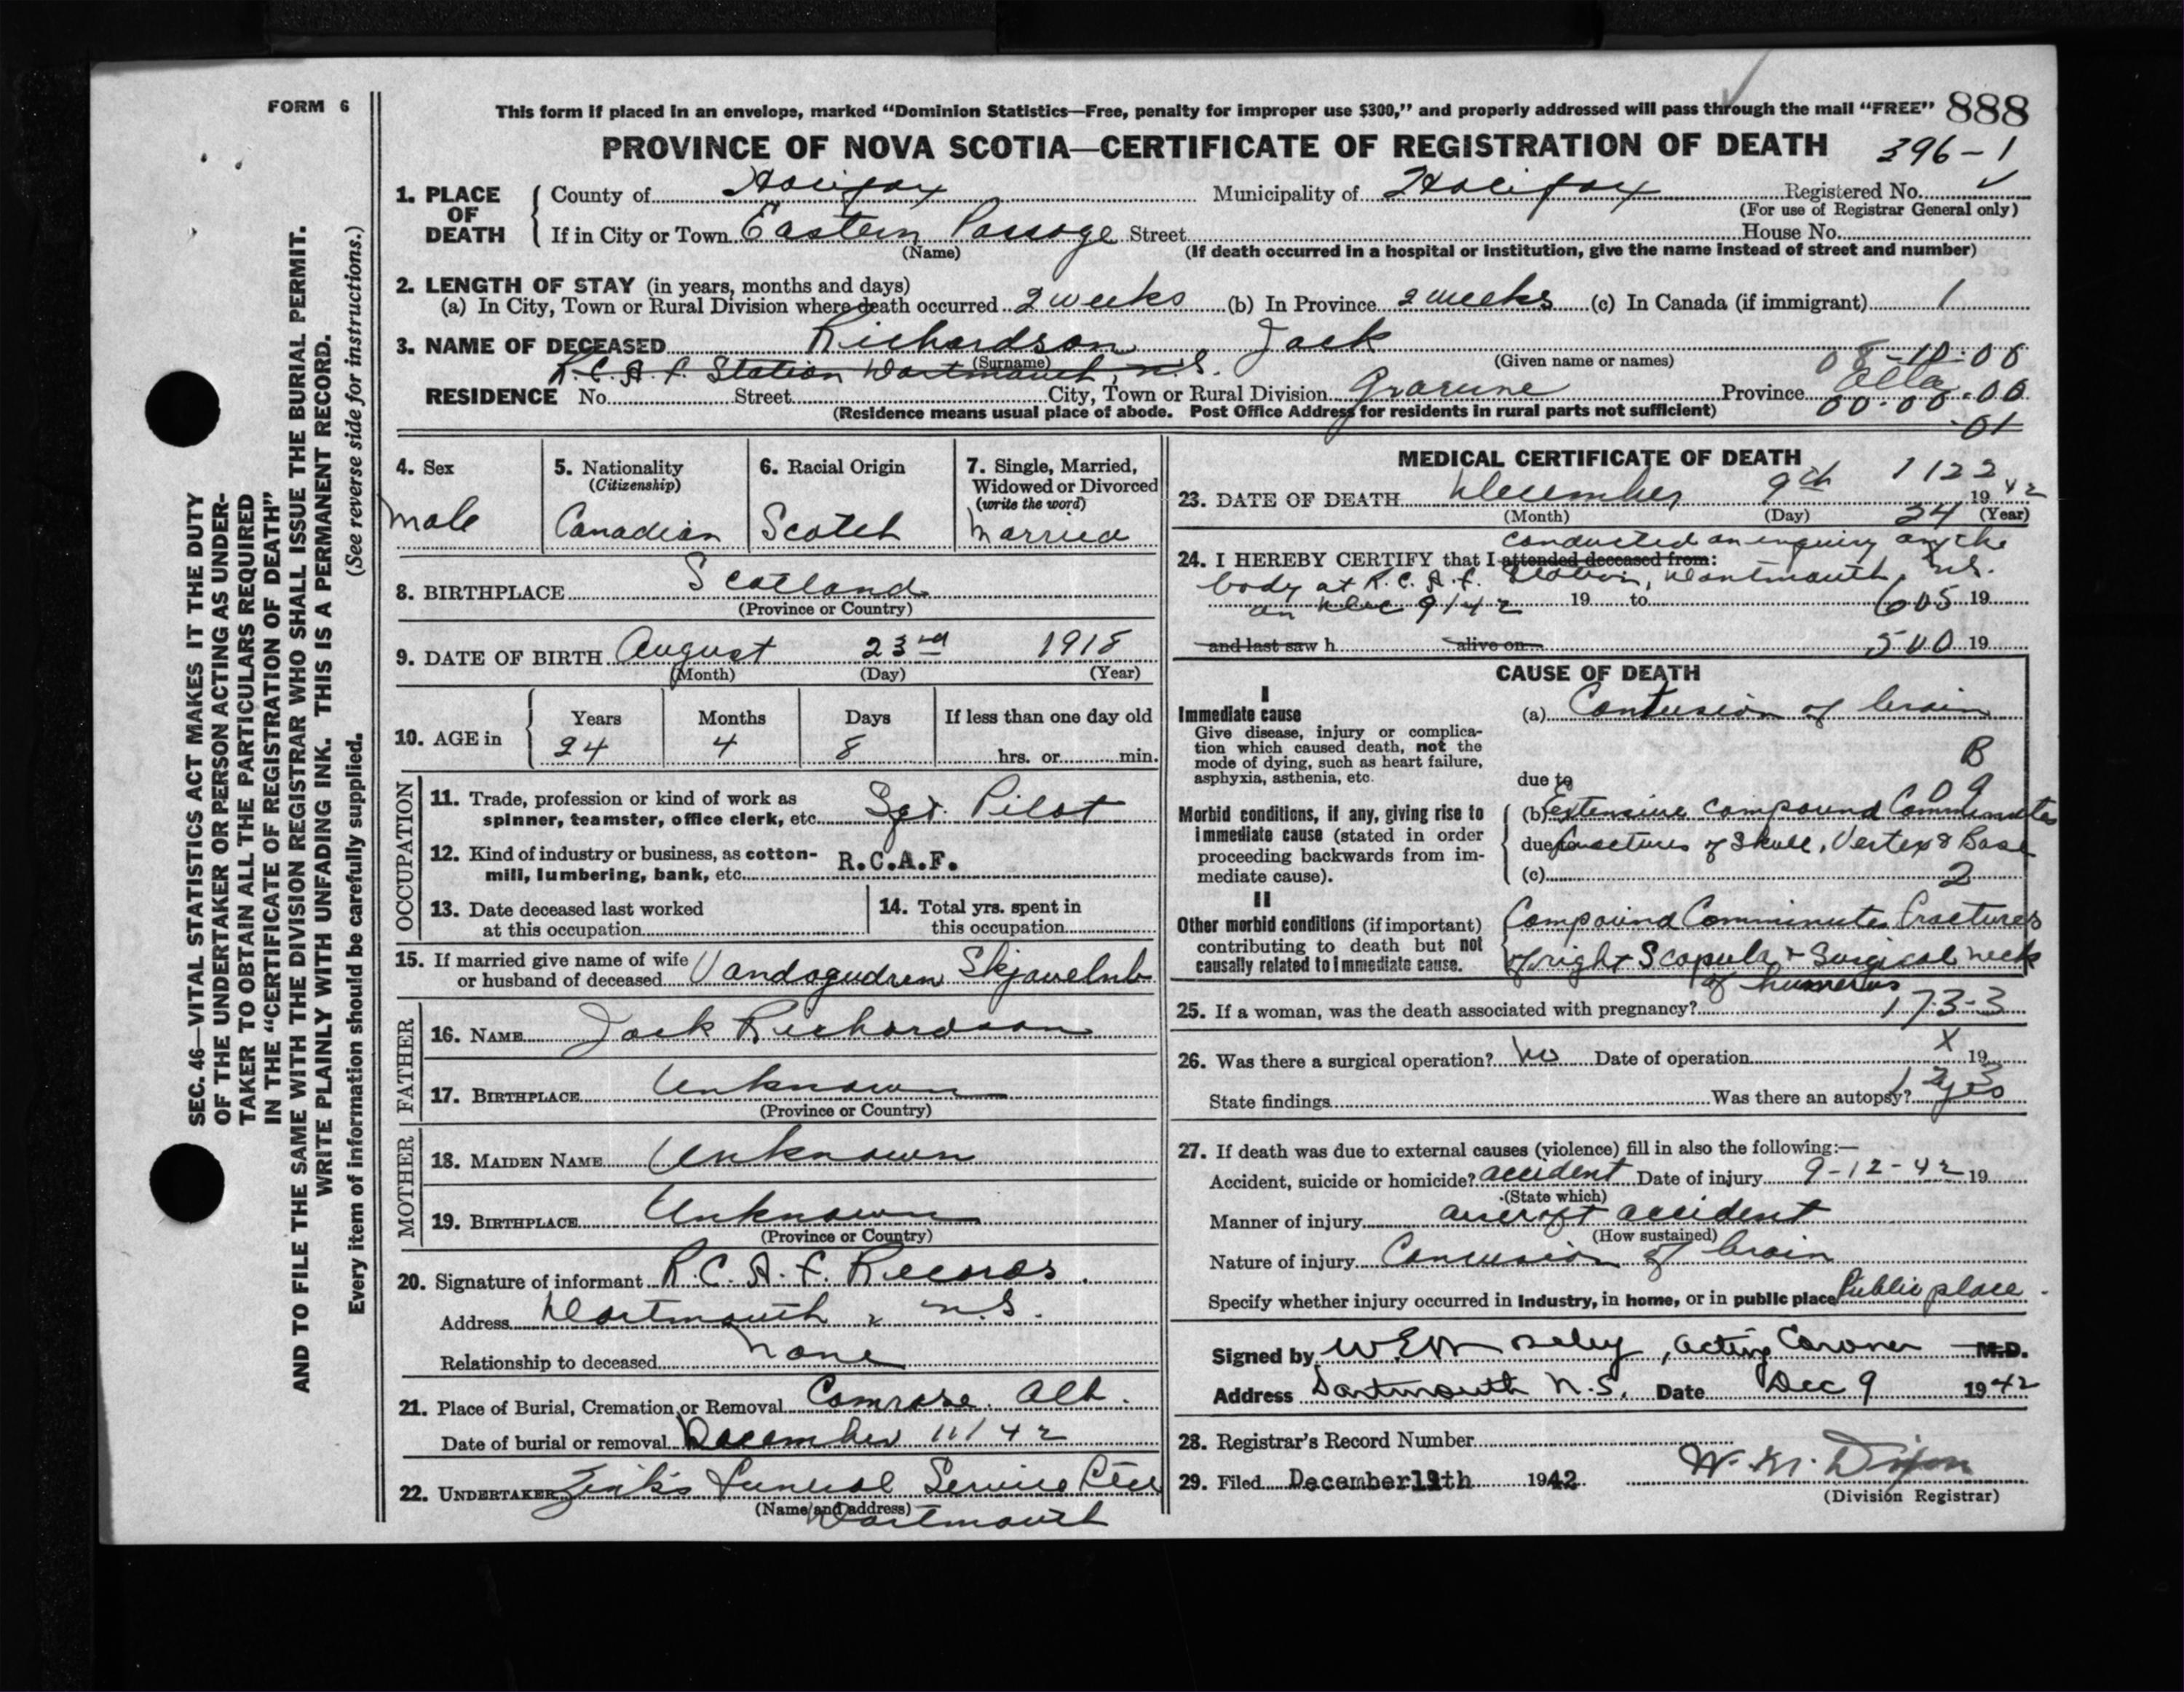 FORM 6
This form if placed in an envelope, marked “Dominion Statistics—Free, penalty for improper use $300,” and properly addressed will pass through the mail “FREE” 888
PROVINCE OF NOVA SCOTIA—CERTIFICATE OF REGISTRATION OF DEATH 396-1
1. PLACE OF DEATH
County of Halifax Municipality of Halifax Registered No.
(For use of Registrar General only)
If in City or Town Eastern Passage Street House No.
(Name) (If death occurred in a hospital or institution, give the name instead of street and number)
2. LENGTH OF STAY (in years, months and days)
(a) In City, Town or Rural Division where death occurred 2 weeks (b) In Province 2 weeks (c) In Canada (if immigrant) 1
3. NAME OF DECEASED Richardson Jack
(Surname) (Given name or names) 08-10-00
R.C.A.F. Station Dartmouth, N.S.
RESIDENCE No. Street City, Town or Rural Division Province Alta
(Residence means usual place of abode. Post Office Address for residents in rural parts not sufficient) 00-00-00
01
4. Sex
male
5. Nationality
(Citizenship)
Canadian
6. Racial Origin
Scotch
7. Single, Married,
Widowed or Divorced
(write the word)
Married
8. BIRTHPLACE Scotland
(Province or Country)
9. DATE OF BIRTH August 23rd 1918
(Month) (Day) (Year)
10. AGE in
Years Months Days If less than one day old
24 4 8 hrs. or min.
OCCUPATION
11. Trade, profession or kind of work as
spinner, teamster, office clerk, etc. Sgt. Pilot
12. Kind of industry or business, as cotton-
mill, lumbering, bank, etc. R.C.A.F.
13. Date deceased last worked
at this occupation
14. Total yrs. spent in
this occupation
15. If married give name of wife
or husband of deceased
FATHER
16. NAME Jack Richardson
17. BIRTHPLACE Unknown
(Province or Country)
MOTHER
18. MAIDEN NAME Unknown
19. BIRTHPLACE Unknown
(Province or Country)
20. Signature of informant R.C.A.F. Records.
Address Dartmouth, N.S.
Relationship to deceased None
21. Place of Burial, Cremation or Removal Camrose. Alb.
Date of burial or removal December 11/42
22. UNDERTAKER Zink's Funeral Service
(Name and address)
Dartmouth
MEDICAL CERTIFICATE OF DEATH
1122
23. DATE OF DEATH December 9th 1942
(Month) (Day) (Year)
24
conducted an enquiry on the
24. I HEREBY CERTIFY that I attended deceased from:
body at R.C.A.F. Station, Dartmouth, N.S.
on Dec 9/42 19 to 605 19
and last saw h alive on 500 19
CAUSE OF DEATH
I
Immediate cause
Give disease, injury or complica-
tion which caused death, not the
mode of dying, such as heart failure,
asphyxia, asthenia, etc.
(a) Contusion of brain
B
09
due to
Morbid conditions, if any, giving rise to
immediate cause (stated in order
proceeding backwards from im-
mediate cause).
(b) Extensive compound Comminuted
due to fractures of Skull, Vertex & Base
(c) 2
II
Other morbid conditions (if important)
contributing to death but not
causally related to immediate cause.
Compound Comminuted fractures
of right Scapula & Surgical neck
of humerus
25. If a woman, was the death associated with pregnancy? 173-3
26. Was there a surgical operation? No Date of operation X 19
State findings Was there an autopsy? yes
27. If death was due to external causes (violence) fill in also the following:—
Accident, suicide or homicide? accident Date of injury 9-12-42 19
(State which)
Manner of injury aircraft accident
(How sustained)
Nature of injury of brain
Specify whether injury occurred in industry, in home, or in public place Public place.
Signed by , acting Coroner M.D.
Address Dartmouth N.S. Date Dec 9 1942
28. Registrar's Record Number
29. Filed December 1942 W. M. Dixon
(Division Registrar)
SEC. 46—VITAL STATISTICS ACT MAKES IT THE DUTY
OF THE UNDERTAKER OR PERSON ACTING AS UNDER-
TAKER TO OBTAIN ALL THE PARTICULARS REQUIRED
IN THE “CERTIFICATE OF REGISTRATION OF DEATH”
AND TO FILE THE SAME WITH THE DIVISION REGISTRAR WHO SHALL ISSUE THE BURIAL PERMIT.
WRITE PLAINLY WITH UNFADING INK. THIS IS A PERMANENT RECORD.
Every item of information should be carefully supplied. (See reverse side for instructions.)